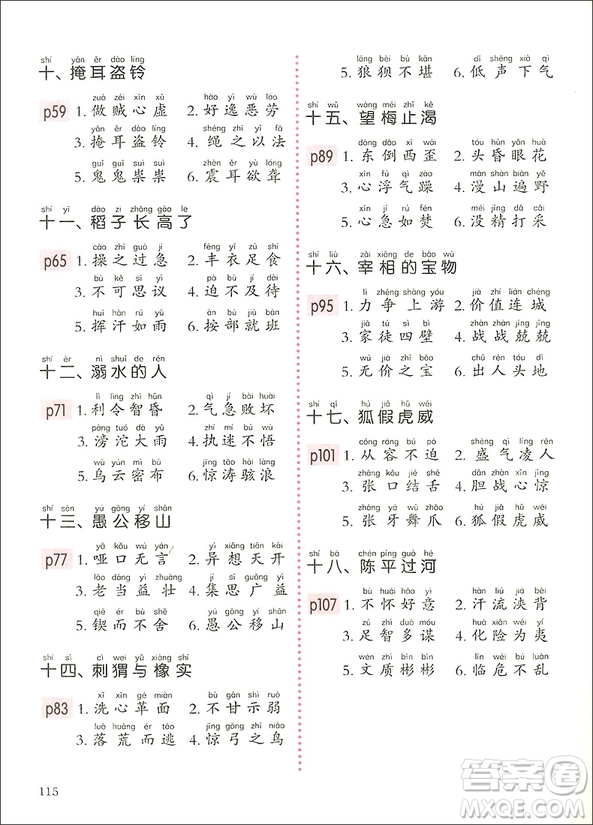 shí yǎn ěr dào líng
十、掩耳盗铃
zuò zéi xīn xū hào yì wù láo
p59 1. 做贼心虚 2. 好逸恶劳
yǎn ěr dào líng shéng zhī yǐ fǎ
3. 掩耳盗铃 4. 绳之以法
guǐ guǐ suì suì zhèn ěr yù lóng
5. 鬼鬼祟祟 6. 震耳欲聋
shí yī dào zi zhǎng gāo le
十一、稻子长高了
cāo zhī guò jí fēng yī zú shí
p65 1. 操之过急 2. 丰衣足食
bù kě sī yì pò bù jí dài
3. 不可思议 4. 迫不及待
huī hàn rú yǔ àn bù jiù bān
5. 挥汗如雨 6. 按部就班
shí èr nì shuǐ de rén
十二、溺水的人
lì lìng zhì hūn qì jí bài huài
p71 1. 利令智昏 2. 气急败坏
pāng tuó dà yǔ zhí mí bú wù
3. 滂沱大雨 4. 执迷不悟
wū yún mì bù jīng tāo hài làng
5. 乌云密布 6. 惊涛骇浪
shí sān yú gōng yí shān
十三、愚公移山
yǎ kǒu wú yán yì xiǎng tiān kāi
p77 1. 哑口无言 2. 异想天开
lǎo dāng yì zhuàng jí sī guǎng yì
3. 老当益壮 4. 集思广益
qiè ér bù shě yú gōng yí shān
5. 锲而不舍 6. 愚公移山
shí sì cì wei yǔ xiàng shí
十四、刺猬与橡实
xǐ xīn gé miàn bù gān shì ruò
p83 1. 洗心革面 2. 不甘示弱
luò huāng ér táo jīng gōng zhī niǎo
3. 落荒而逃 4. 惊弓之鸟
láng bèi bù kān dī shēng xià qì
5. 狼狈不堪 6. 低声下气
shí wǔ wàng méi zhǐ kě
十五、望梅止渴
dōng dǎo xī wāi tóu hūn yǎn huā
p89 1. 东倒西歪 2. 头昏眼花
xīn fú qì zào màn shān biàn yě
3. 心浮气躁 4. 漫山遍野
xīn jí rú fén méi jīng dǎ cǎi
5. 心急如焚 6. 没精打采
shí liù zǎi xiàng de bǎo wù
十六、宰相的宝物
lì zhēng shàng yóu jià zhí lián chéng
p95 1. 力争上游 2. 价值连城
jiā tú sì bì zhàn zhàn jīng jīng
3. 家徒四壁 4. 战战兢兢
wú jià zhī bǎo chū rén tóu dì
5. 无价之宝 6. 出人头地
shí qī hú jiǎ hǔ wēi
十七、狐假虎威
cóng róng bú pò shèng qì líng rén
p101 1. 从容不迫 2. 盛气凌人
zhāng kǒu jié shé dǎn zhàn xīn jīng
3. 张口结舌 4. 胆战心惊
zhāng yá wǔ zhǎo hú jiǎ hǔ wēi
5. 张牙舞爪 6. 狐假虎威
shí bā chén píng guò hé
十八、陈平过河
bù huái hǎo yì hàn liú jiā bèi
p107 1. 不怀好意 2. 汗流浃背
zú zhì duō móu huà xiǎn wéi yí
3. 足智多谋 4. 化险为夷
wén zhì bīn bīn lín wēi bú luàn
5. 文质彬彬 6. 临危不乱
115
答案圈
MXQE.COM